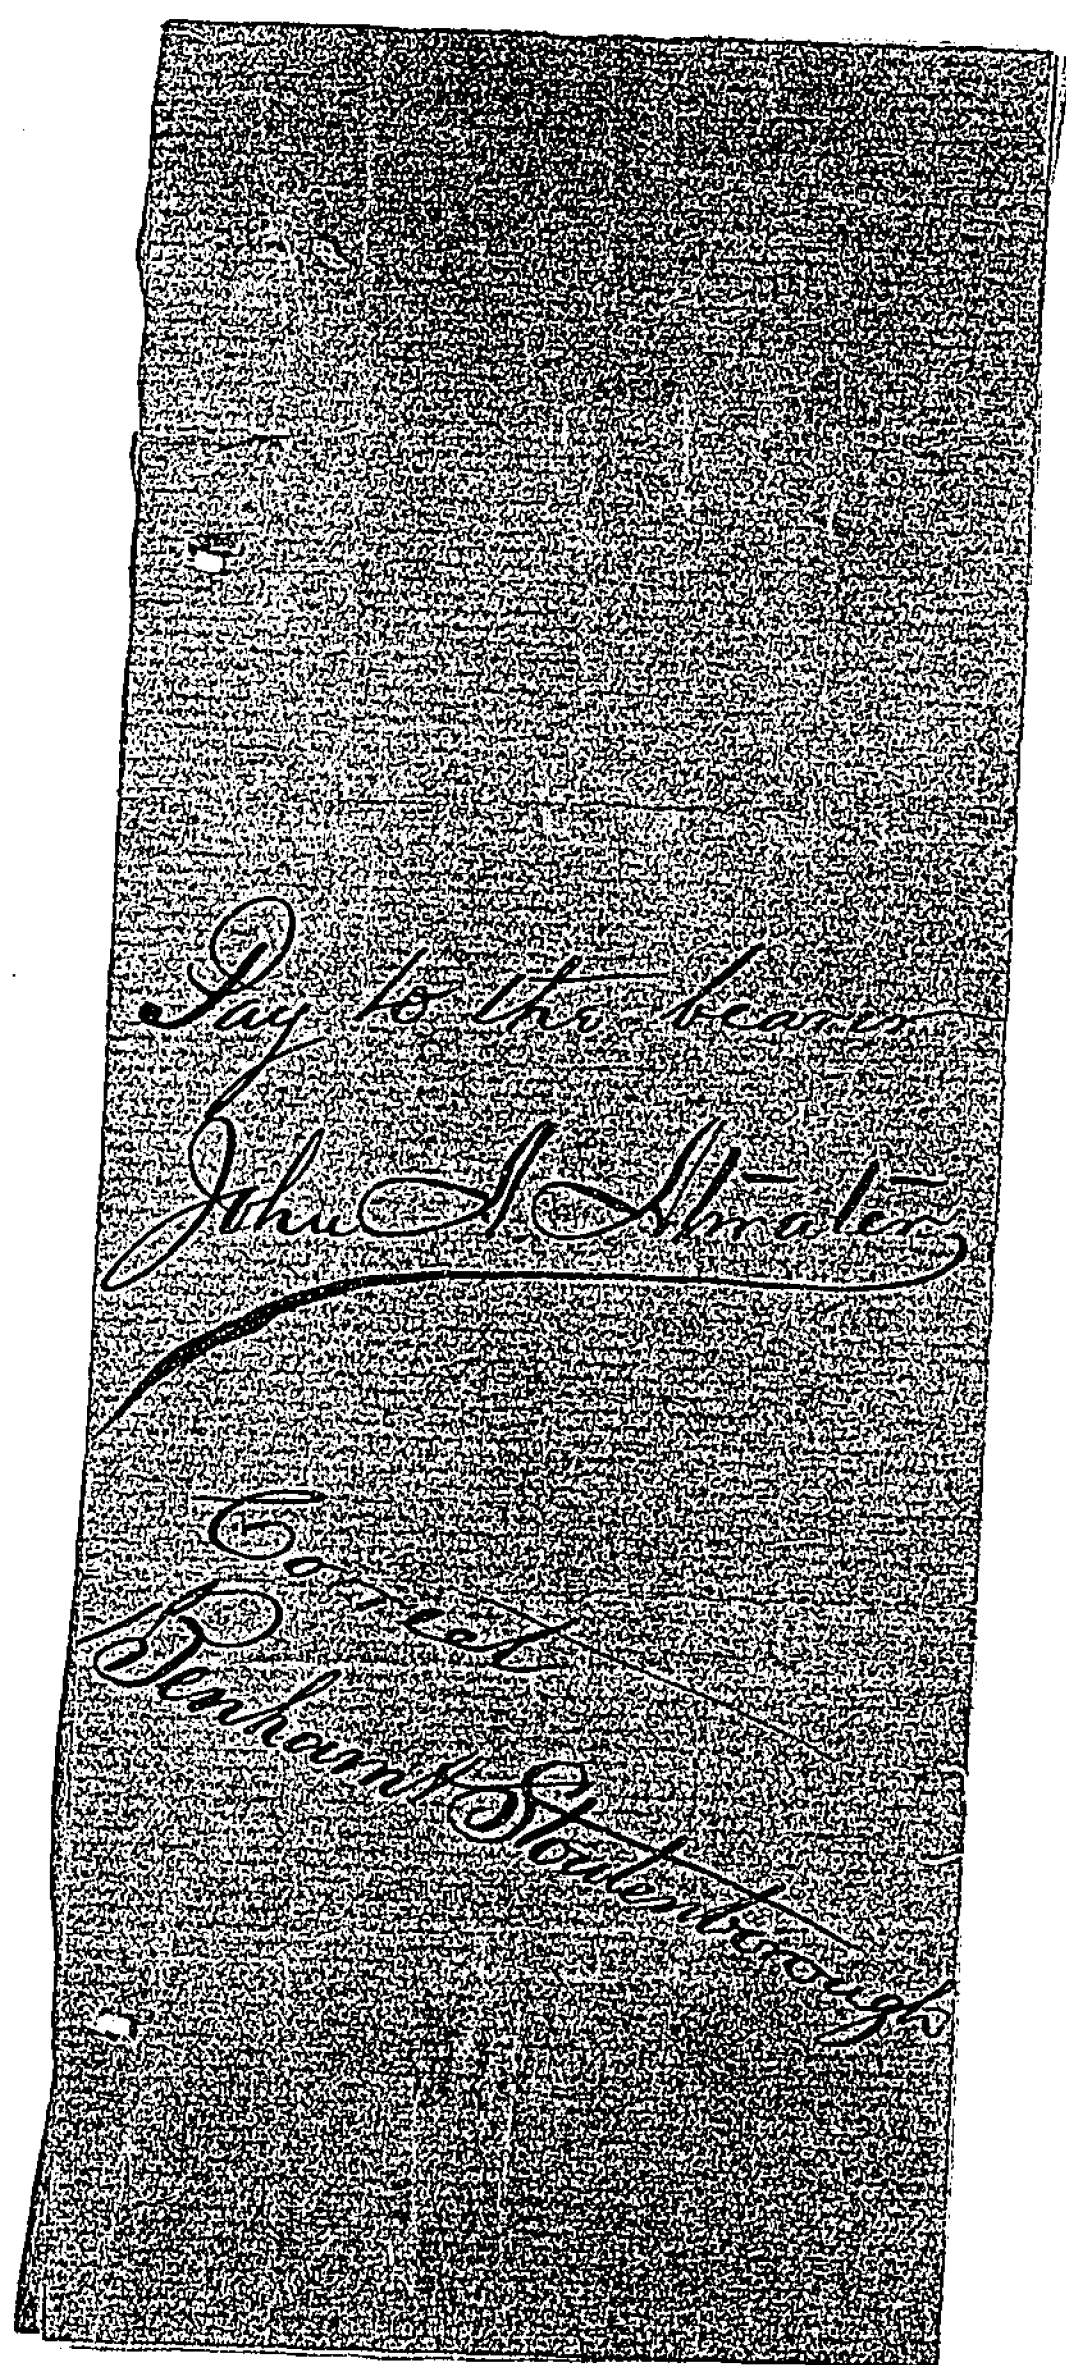 Pay to the bearer
John A Atwater
Correct
Benham & Stoutenborough